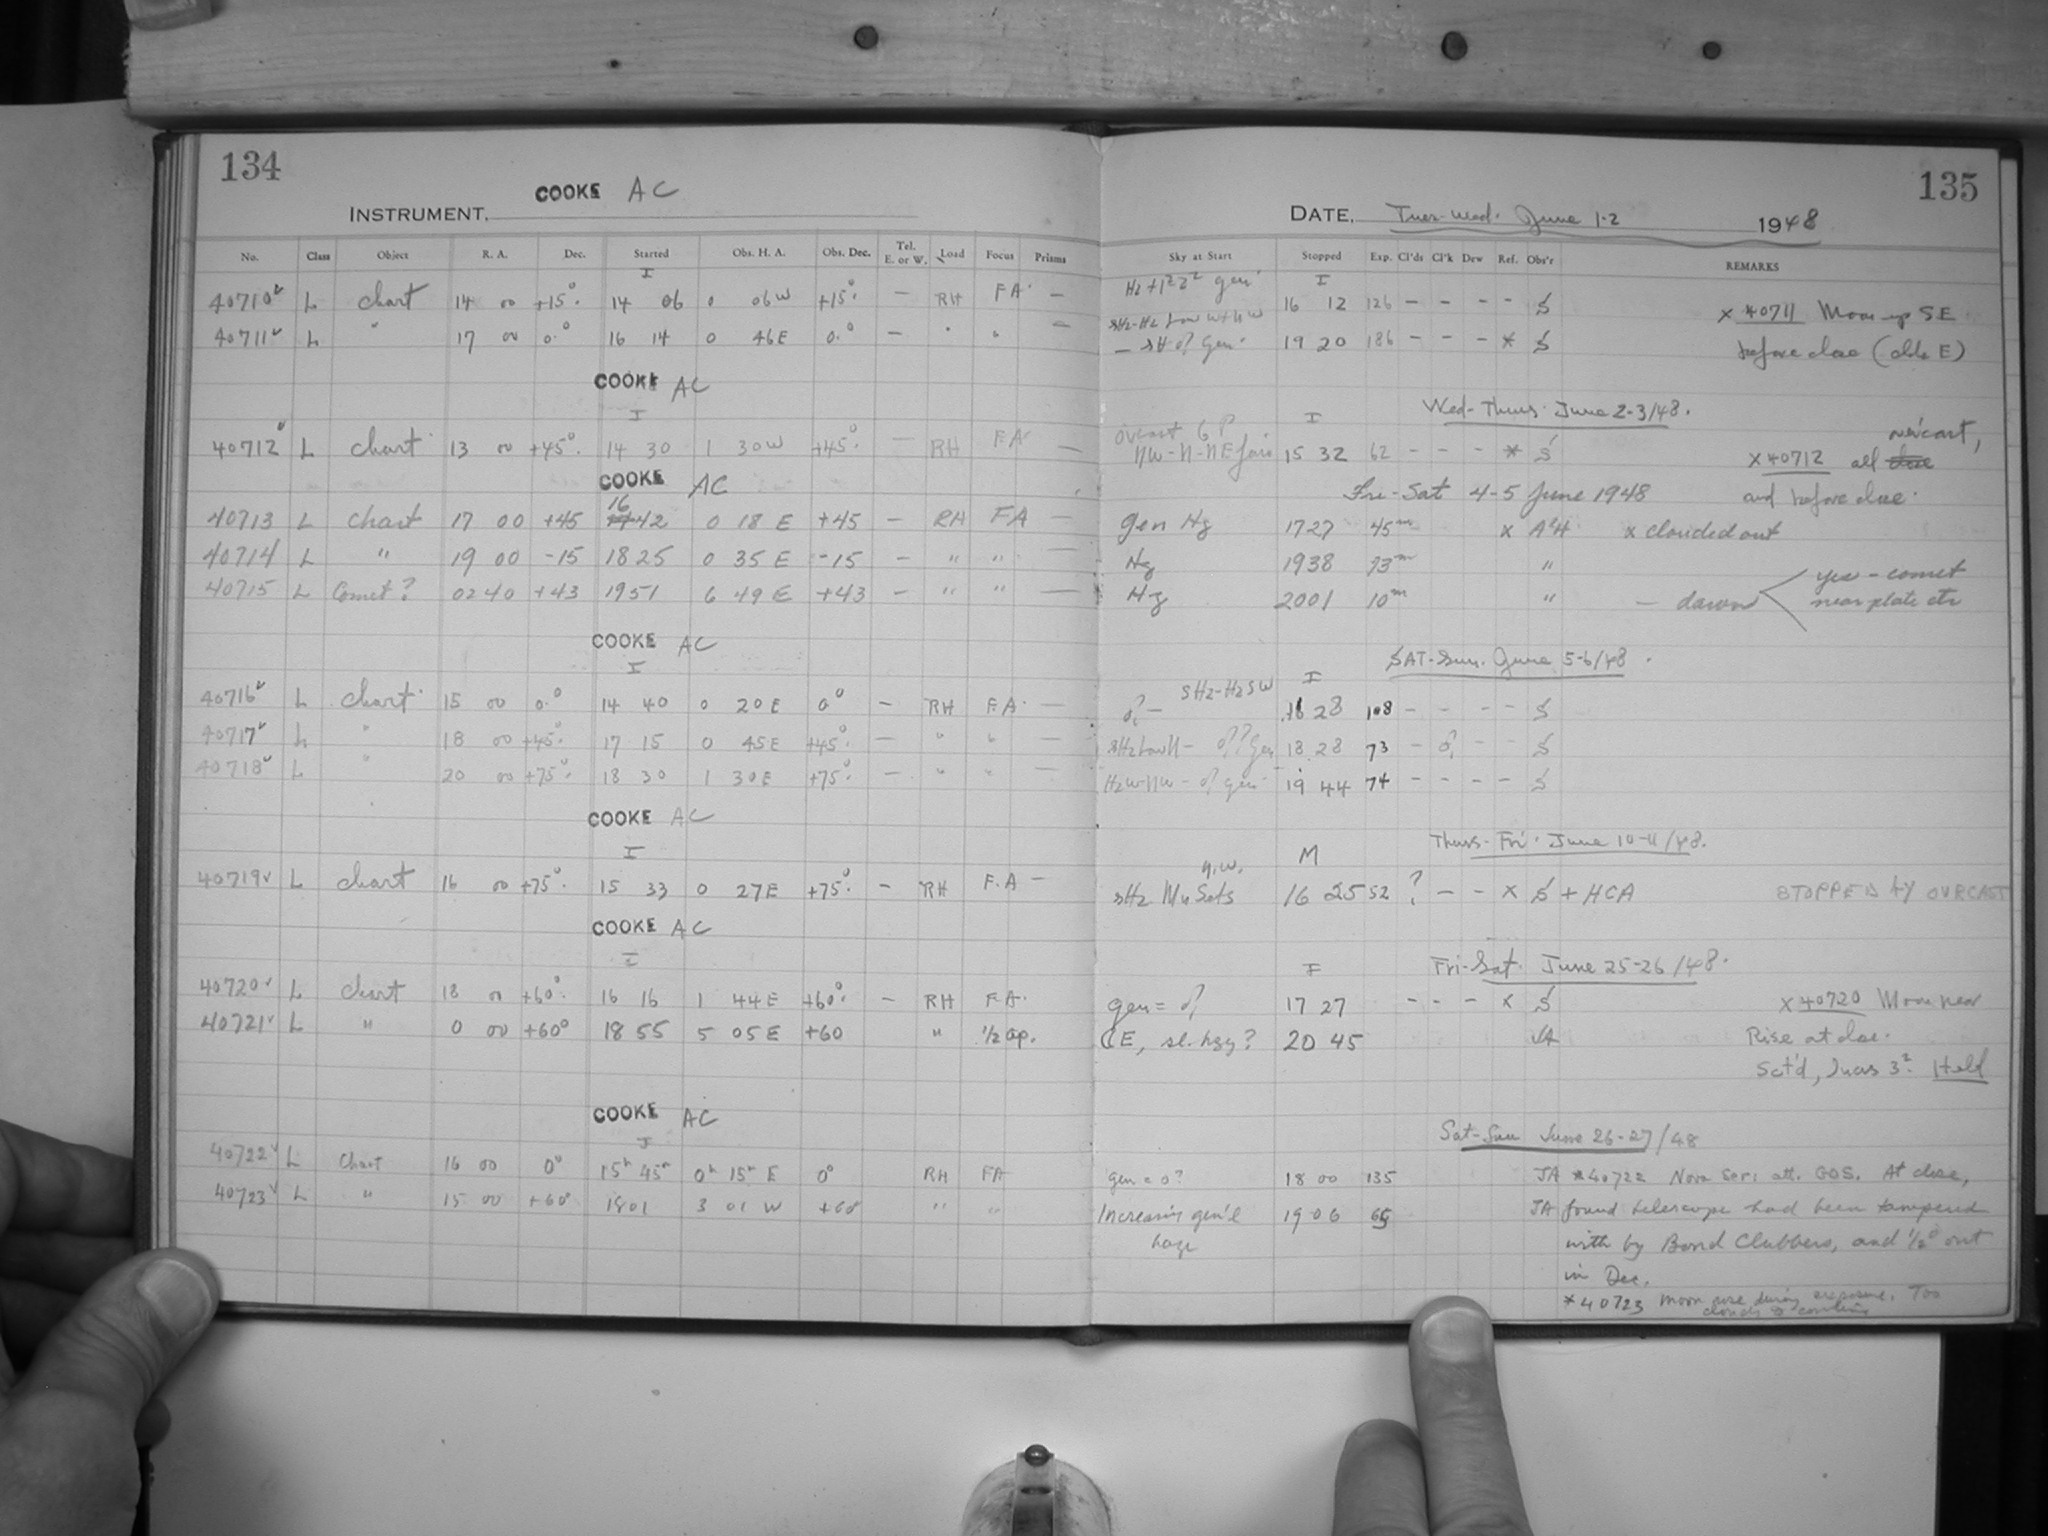 134
COOKE AC
INSTRUMENT.
No. Class Object R. A. Dec. Started Obs. H. A. Obs. Dec. Tel. E. or W. Load Focus Prisms
I
40710 L chart 14 00 +15° 14 06 0 06W +15° — RH FA —
40711 L " 17 00 0° 16 14 0 46E 0° — " " —
COOKE AC
I
40712 L chart 13 00 +45° 14 30 1 30W +45° — RH FA —
COOKE AC
16
40713 L chart 17 00 +45 42 0 18 E +45 — RH FA —
40714 L " 19 00 -15 1825 0 35 E -15 — " " —
40715 L Comet? 02 40 +43 1951 6 49 E +43 — " " —
COOKE AC
I
40716 L chart 15 00 0° 14 40 0 20E 0° — RH FA —
40717 L " 18 00 +45° 17 15 0 45E +45° — " " —
40718 L " 20 00 +75° 18 30 1 30E +75° — " " —
COOKE AC
I
40719 L chart 16 00 +75° 15 33 0 27E +75° — RH F.A —
COOKE AC
I
40720 L chart 18 00 +60° 16 16 1 44E +60° — RH F.A.
40721 L " 0 00 +60° 18 55 5 05 E +60 " 1/2 ap.
COOKE AC
40722 L Chart 16 00 0° 15h 45m 0h 15m E 0° RH FA
40723 L " 15 00 +60° 1801 3 01 W +60 " "
135
DATE. Tues-Wed. June 1-2 1948
Sky at Start Stopped Exp. Cl'ds Cl'k Drw Ref. Obs'r REMARKS
I
gen 16 12 126 — — — — S x 40711 Moon up SE
gen. 19 20 186 — — — * S before close
Wed-Thurs. June 2-3/48.
I
overcast
NW-N-NE 15 32 62 — — — * S x 40712 all overcast,
Fri-Sat 4-5 June 1948 and before close.
gen Hz 1727 45m x A2H x clouded out
Hz 1938 73m "
Hz 2001 10m " — dawn yes - comet
near plate ctr
SAT-Sun. June 5-6/48.
I
SHz-Hz SW 16 28 108 — — — — S
18 28 73 — — — S
gen 19 44 74 — — — — S
Thurs-Fri. June 10-11/48.
M
N.W.
sHz 16 25 52 ? — — x S + HCA STOPPED by OVRCAST
Fri-Sat. June 25-26/48.
I
gen = 17 27 — — — x S x 40720 Moon near
CE, sl. hzy? 20 45 JA Rise at close.
Held
Sat-Sun June 26-27/48
gen = 0? 18 00 135 JA *40722 Nova Ser: att. GDS. At close,
Increasing gen'l 19 06 65 JA found telescope had been tampered
haze with by Bond Clubbers, and 1/2° out
in Dec.
*40723 Moon rose during exposure. Too
cloudy to continue